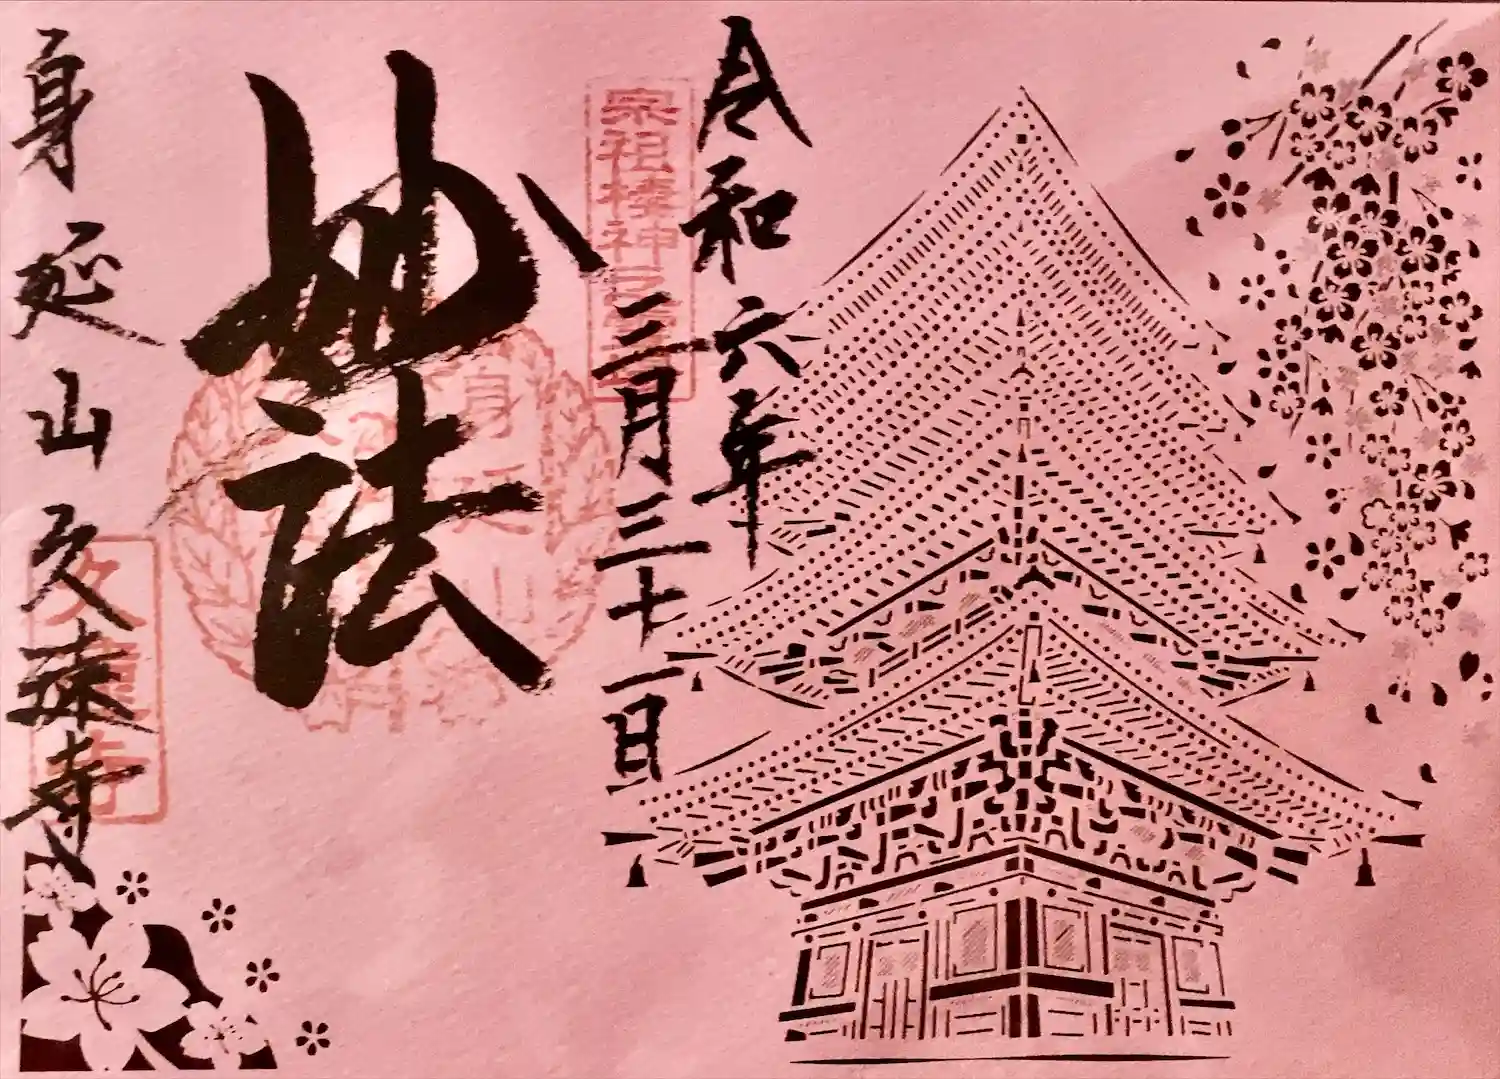 令和六年
三月三十一日
宗祖棲神
妙法
身延山
身延山久遠寺
久遠寺